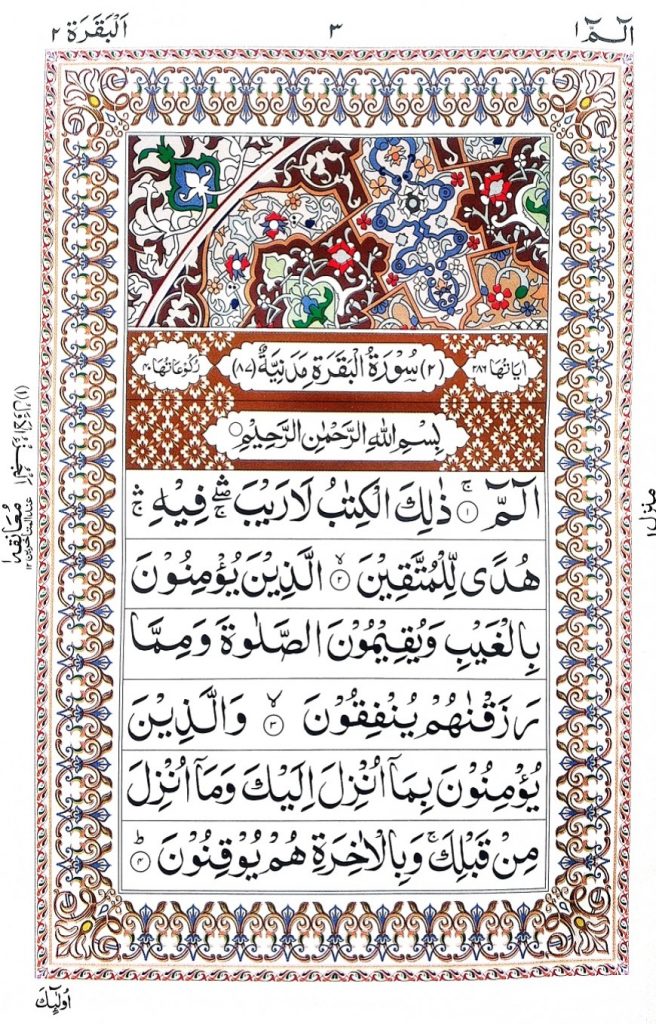 الٓمّٓ ١
٣
اَلْبَقَرَة ٢
اٰيَاتُهَا ٢٨٦
(٢) سُوْرَةُ الْبَقَرَةِ مَدَنِيَّةٌ (٨٧)
رُكُوْعَاتُهَا ٤٠
بِسْمِ اللهِ الرَّحْمٰنِ الرَّحِيْمِ
الٓمّٓ ۚ﴿١﴾ ذٰلِكَ الْكِتٰبُ لَا رَيْبَ ۛۖ فِيْهِ ۛۚ
هُدًى لِّلْمُتَّقِيْنَ ۙ﴿٢﴾ الَّذِيْنَ يُؤْمِنُوْنَ
بِالْغَيْبِ وَيُقِيْمُوْنَ الصَّلٰوةَ وَمِمَّا
رَزَقْنٰهُمْ يُنْفِقُوْنَ ۙ﴿٣﴾ وَالَّذِيْنَ
يُؤْمِنُوْنَ بِمَاۤ اُنْزِلَ اِلَيْكَ وَمَاۤ اُنْزِلَ
مِنْ قَبْلِكَ ۚ وَبِالْاٰخِرَةِ هُمْ يُوْقِنُوْنَ ؕ﴿٤﴾
منزل ١
مُعَانقه ١
عند المتاخرين ١٢
اُولٰٓئِكَ